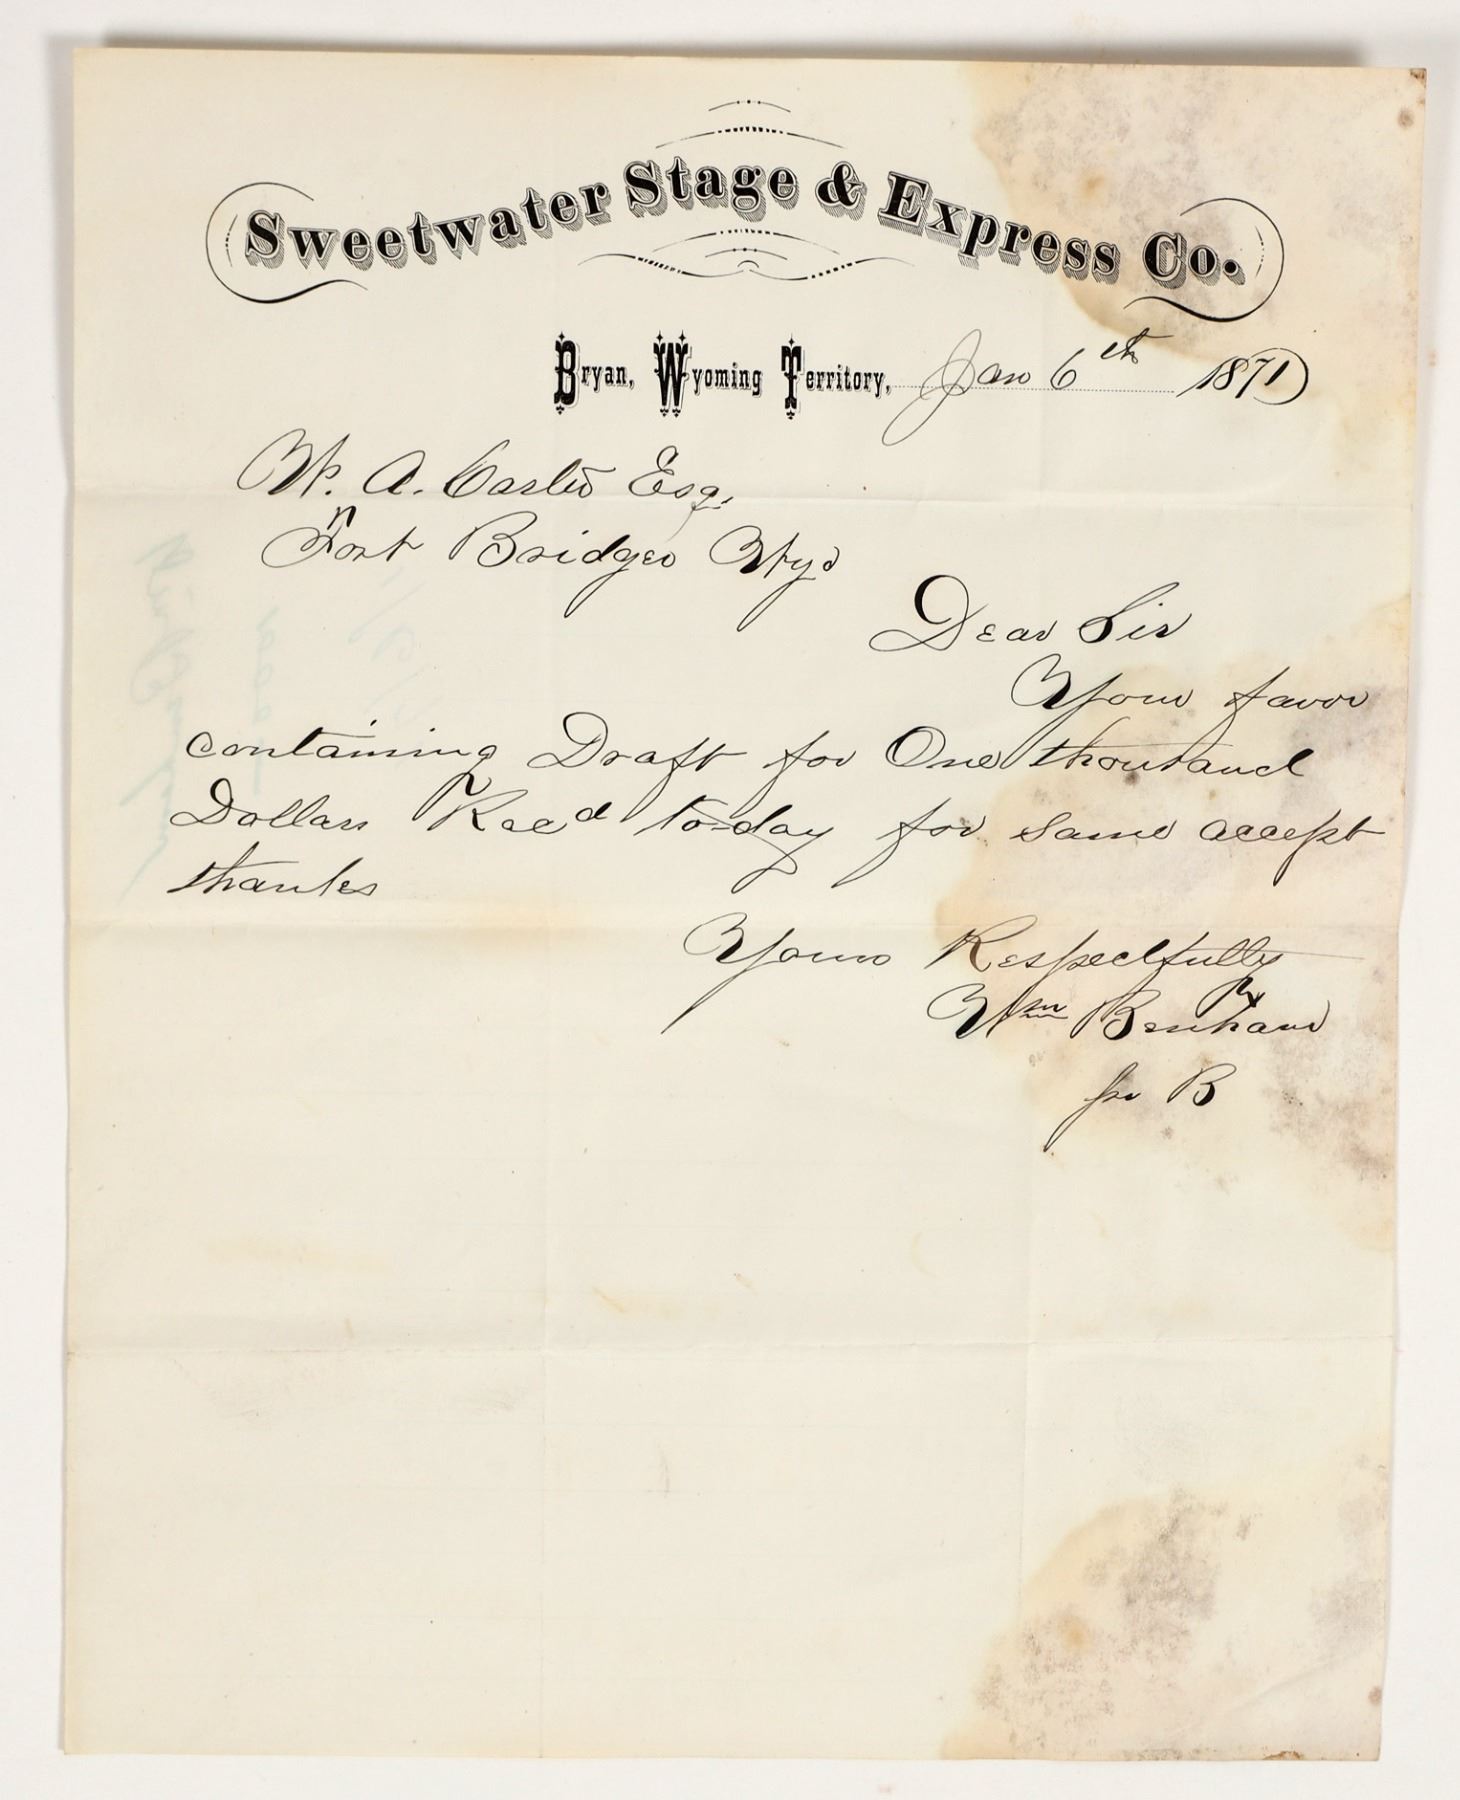 Sweetwater Stage & Express Co.
Bryan, Wyoming Territory, Jan 6th 1871
W. A. Carter Esq.
Fort Bridger Wyo
Dear Sir
Your favor
containing Draft for One thousand
Dollars Recd to-day for same accept
thanks
Yours Respectfully
Wm Benham
pr B